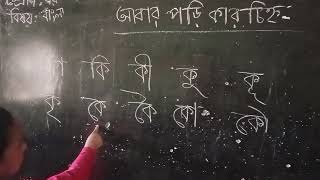 বিষয়: বাংলা
আবার পড়ি কার চিহ্ন
কি কী কু কূ
কৃ কে কৈ কো কৌ